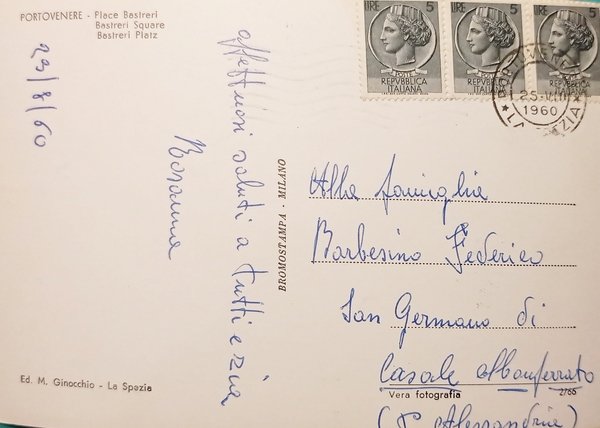 PORTOVENERE - Place Bastreri
Bastreri Square
Bastreri Platz
23/8/60
affettuosi saluti a tutti e zia
Rosanna
Ed. M. Ginocchio - La Spezia
BROMOSTAMPA - MILANO
LIRE 5
POSTE
REPVBBLICA
ITALIANA
LIRE 5
POSTE
REPVBBLICA
ITALIANA
LIRE 5
PORTOVENERE
25.VIII
1960
LA SPEZIA
Alla famiglia
Barbesino Federico
San Germano di
Casale Monferrato
Vera fotografia
2765
(P. Alessandria)